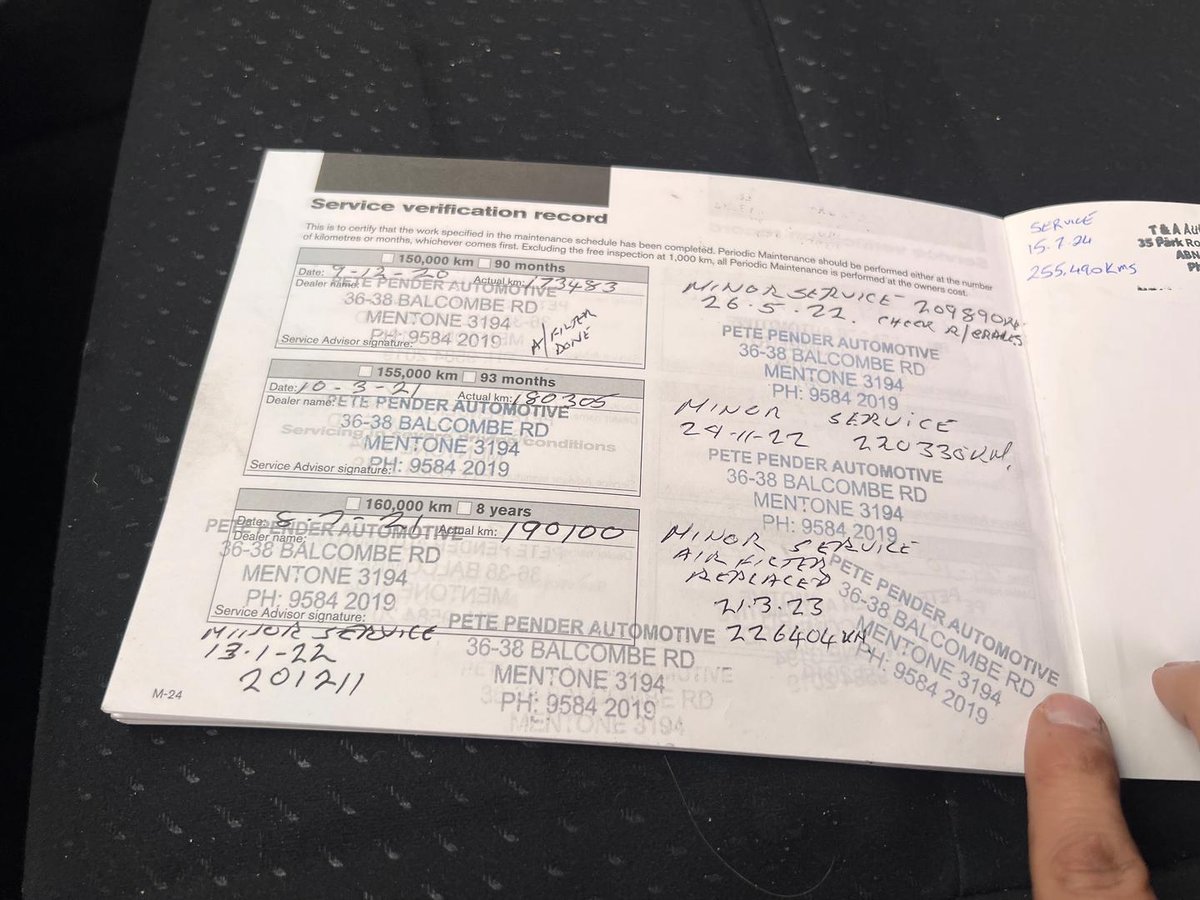 Service verification record
This is to certify that the work specified in the maintenance schedule has been completed. Periodic Maintenance should be performed either at the number
of kilometres or months, whichever comes first. Excluding the free inspection at 1,000 km, all Periodic Maintenance is performed at the owners cost.
150,000 km 90 months
Date: 9-12-20 Actual km: 173483
Dealer name:
PETE PENDER AUTOMOTIVE
36-38 BALCOMBE RD
MENTONE 3194
PH: 9584 2019
A/FILTER
DONE
Service Advisor signature:
155,000 km 93 months
Date: 10-3-21 Actual km: 180305
Dealer name:
PETE PENDER AUTOMOTIVE
36-38 BALCOMBE RD
MENTONE 3194
PH: 9584 2019
Service Advisor signature:
160,000 km 8 years
Date: 8-7-21 Actual km: 190100
Dealer name:
PETE PENDER AUTOMOTIVE
36-38 BALCOMBE RD
MENTONE 3194
PH: 9584 2019
Service Advisor signature:
MINOR SERVICE
13-1-22
201211
PETE PENDER AUTOMOTIVE
36-38 BALCOMBE RD
MENTONE 3194
PH: 9584 2019
M-24
MINOR SERVICE 209890
26.5.22. CHECK R/BRAKES
PETE PENDER AUTOMOTIVE
36-38 BALCOMBE RD
MENTONE 3194
PH: 9584 2019
MINOR SERVICE
24-11-22 220330KM.
PETE PENDER AUTOMOTIVE
36-38 BALCOMBE RD
MENTONE 3194
PH: 9584 2019
MINOR SERVICE
AIR FILTER
REPLACED
21.3.23
226404KM
PETE PENDER AUTOMOTIVE
36-38 BALCOMBE RD
MENTONE 3194
PH: 9584 2019
SERVICE
15.7.24
255,490KMS
T & A Aut
35 Park Ro
ABN
Ph